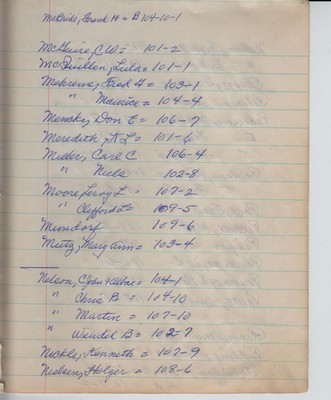 McBride, Frank H = B 104-10-1
McGuire, C.W = 101-2
McQuillen, Lula = 101-1
Mehrens, Fred G = 103-1
" Maurice = 104-4
Menske, Don E = 106-7
Meredith, A L = 101-6
Miller, Carl C 106-4
" Nels 102-8
Moore, Leroy L = 107-2
" Clifford L = 109-5
Mundorf 109-6
Mutz, Mary Ann = 103-4
Nelson, C. John = 104-1
" Chris B = 104-10
" Martin = 107-10
" Wendel B = 102-7
Nickle, Kenneth = 107-9
Nielsen, Holger = 108-6